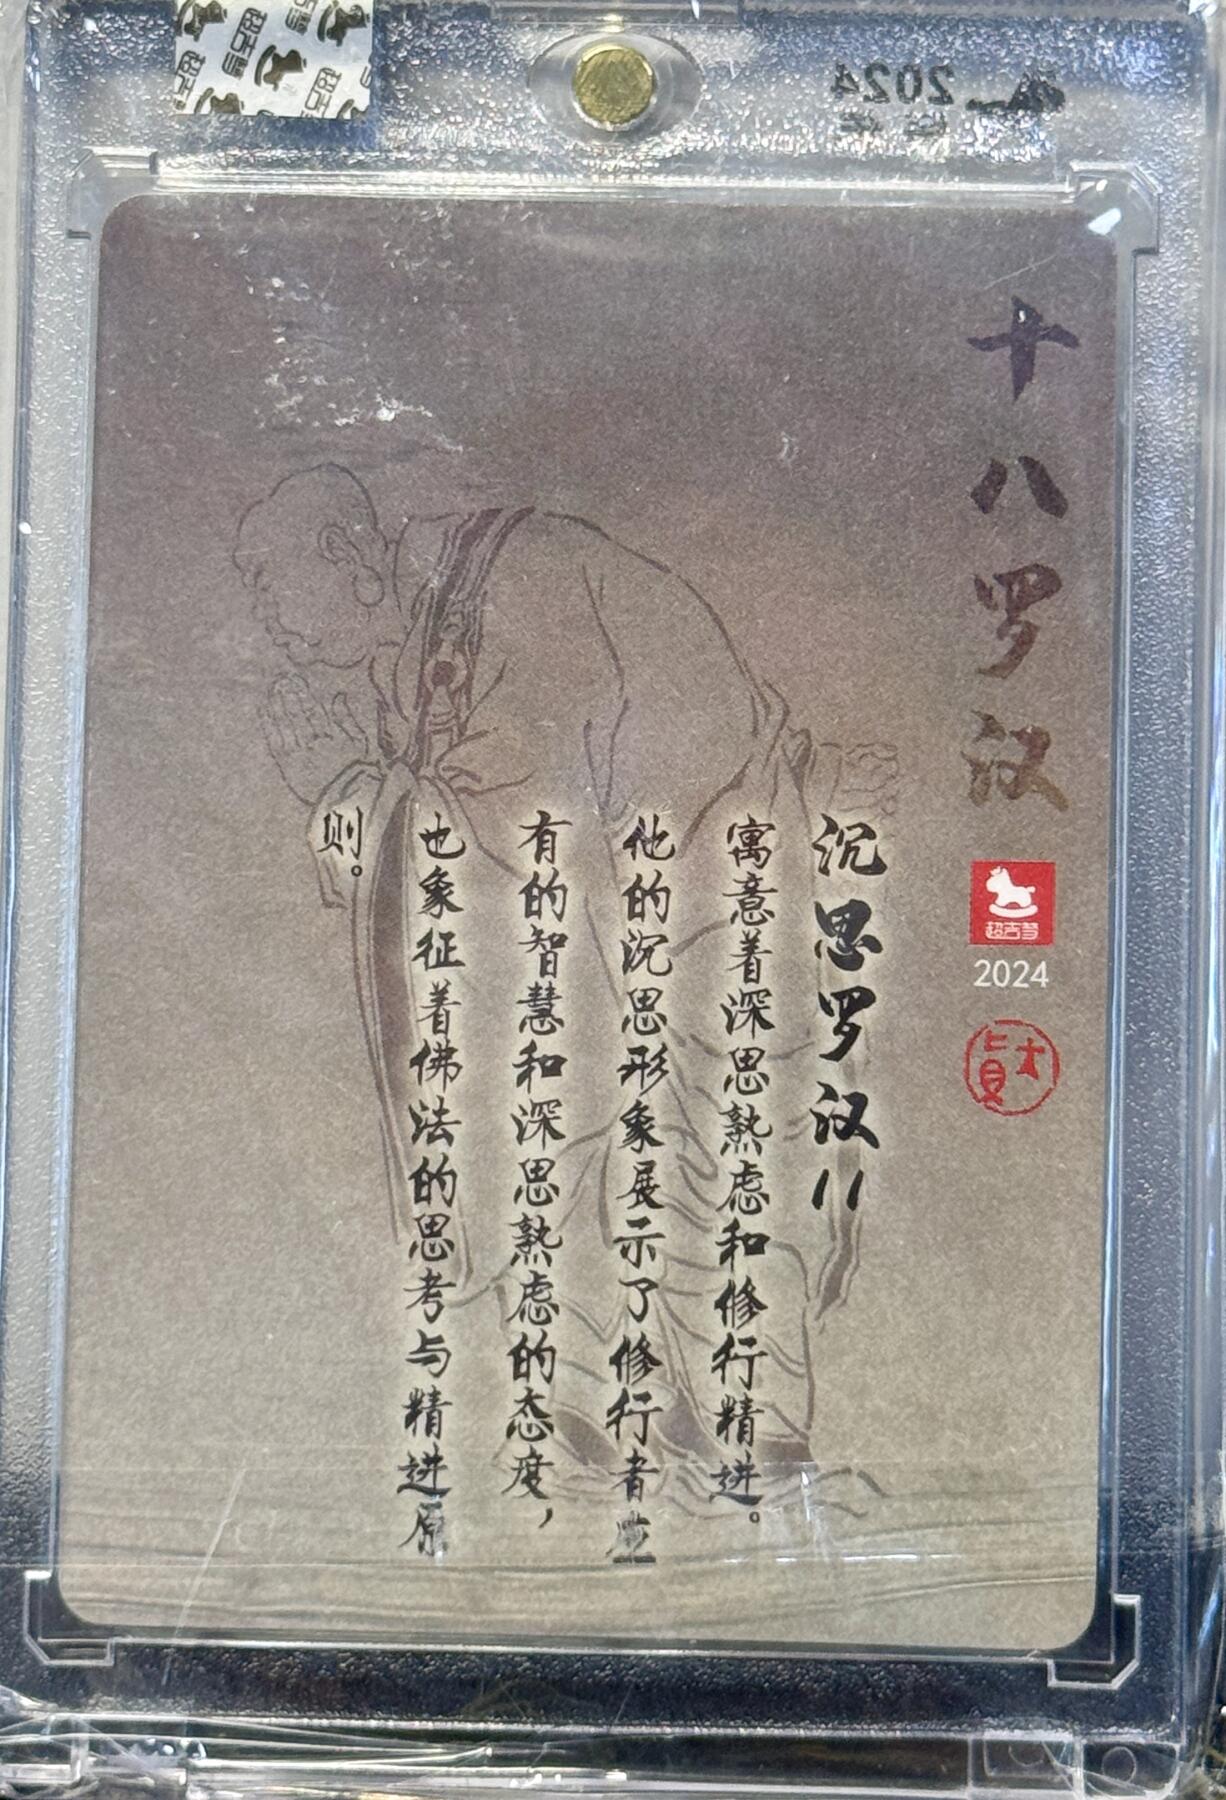 十八罗汉
超吉梦
2024
沉思罗汉//
寓意着深思熟虑和修行精进。
他的沉思形象展示了修行者应
有的智慧和深思熟虑的态度，
也象征着佛法的思考与精进原
则。
2024